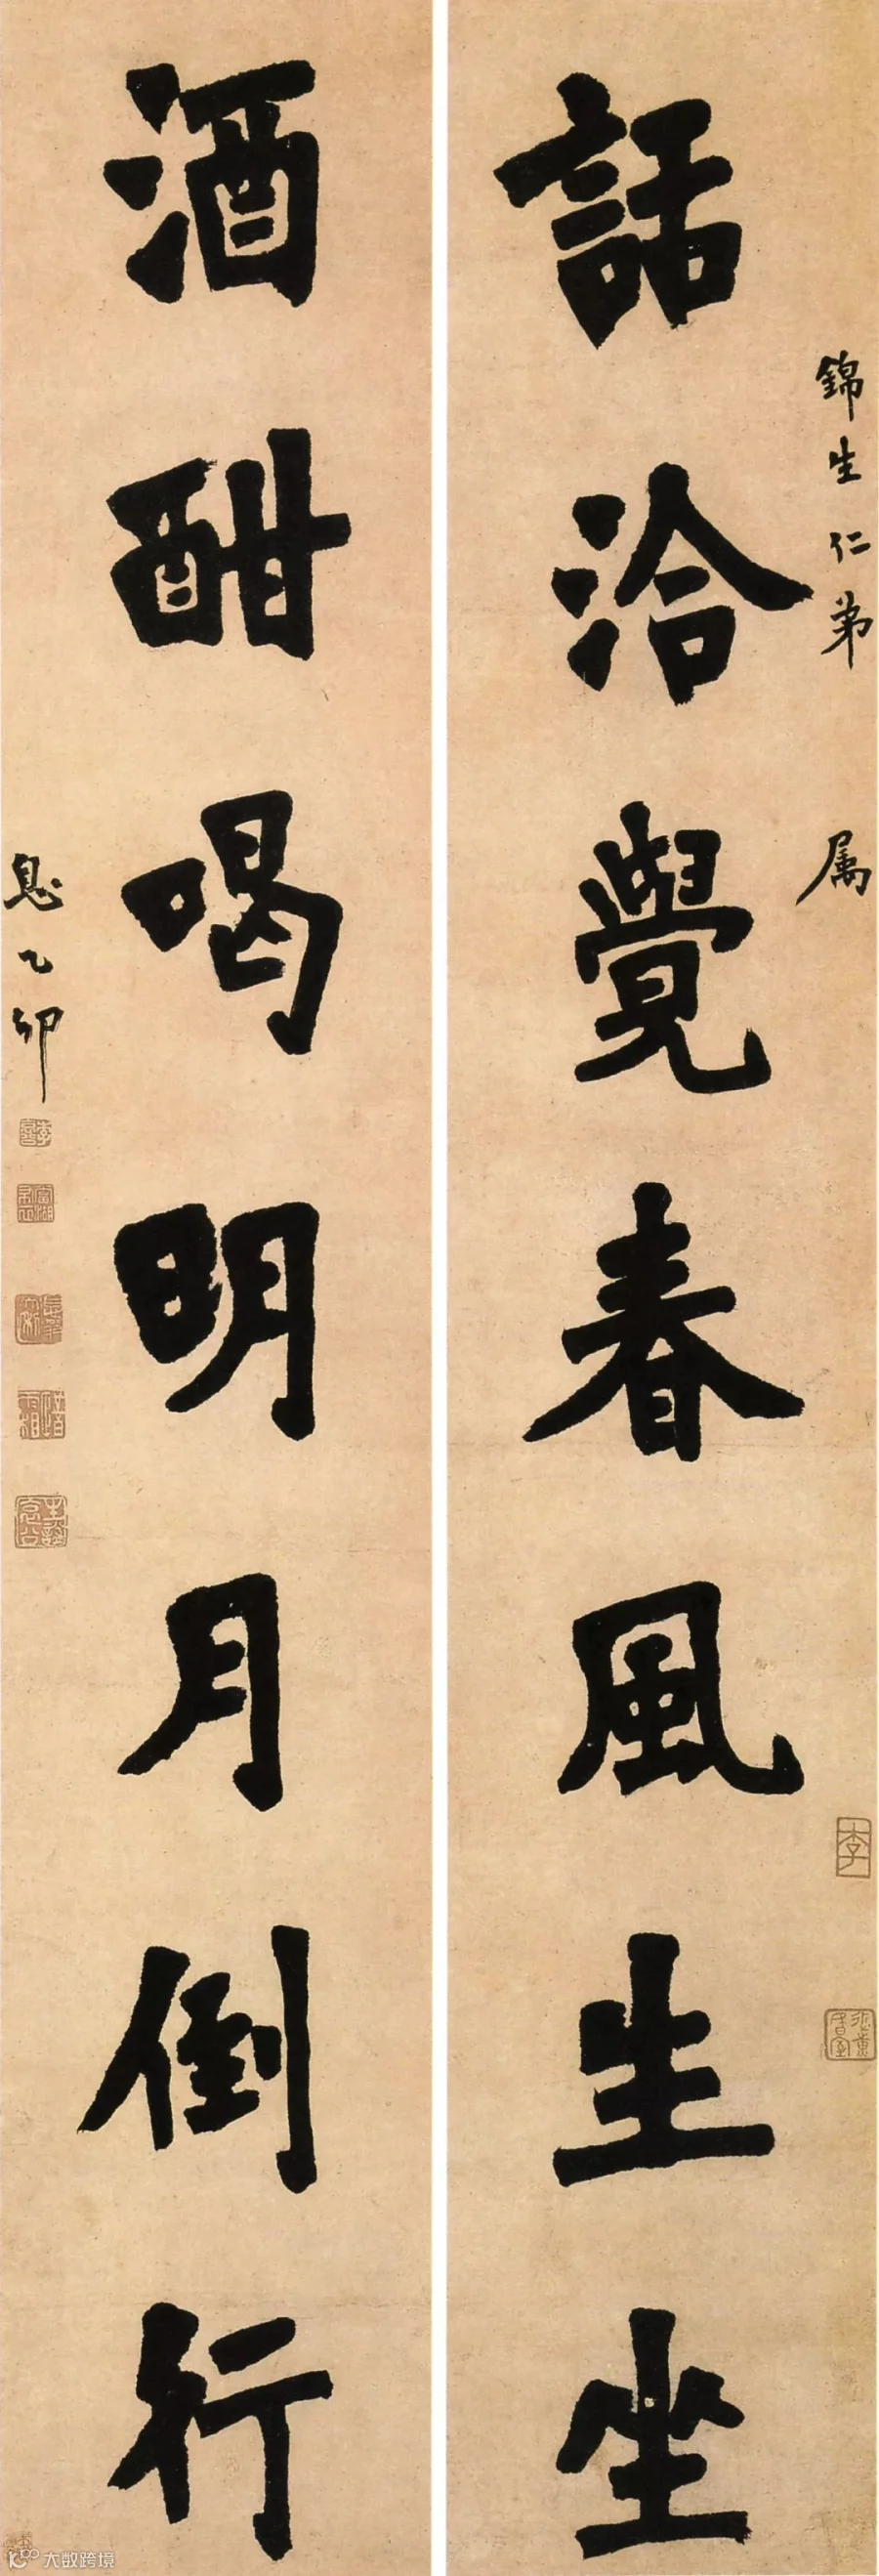 錦生仁弟 属
話洽覺春風生坐
李
酒酣喝明月倒行
息乙卯
大数跨境